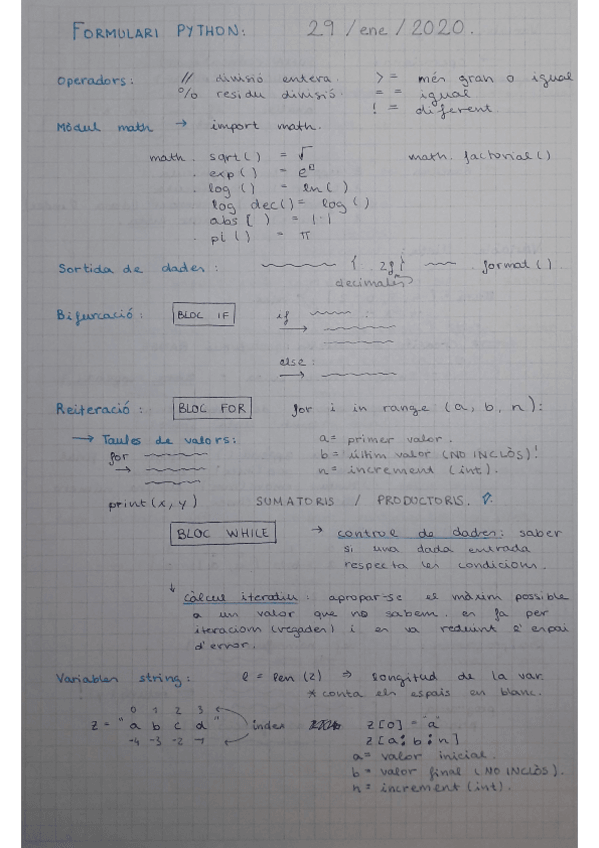 FORMULARI PYTHON: 29/ene/2020.
Operadors: // divisió entera. >= més gran o igual
% residu divisió. == igual
!= diferent
Mòdul math → import math.
math. sqrt() = √ math. factorial()
. exp() = e^□
. log() = ln()
log dec() = log()
. abs[ ] = |·|
. pi() = π
Sortida de dades: { .2g} .format()
decimals
Bifurcació: BLOC IF if :
→
else:
→
Reiteració: BLOC FOR for i in range (a, b, n):
→ Taules de valors: a = primer valor.
for b = últim valor (NO INCLÒS)!
→ n = increment (int).
print(x, y) SUMATORIS / PRODUCTORIS. ⇧
BLOC WHILE → control de dades: saber
si una dada entrada
respecta les condicions.
↓ càlcul iteratiu: apropar-se el màxim possible
a un valor que no sabem. es fa per
iteracions (vegades) i es va reduint l'espai
d'error.
Variables string: l = len(z) ⇒ longitud de la var.
* conta els espais en blanc.
0 1 2 3
z = "a b c d" índex z[0] = "a"
-4 -3 -2 -1 z[a:b:n]
a = valor inicial.
b = valor final (NO INCLÒS).
n = increment (int).